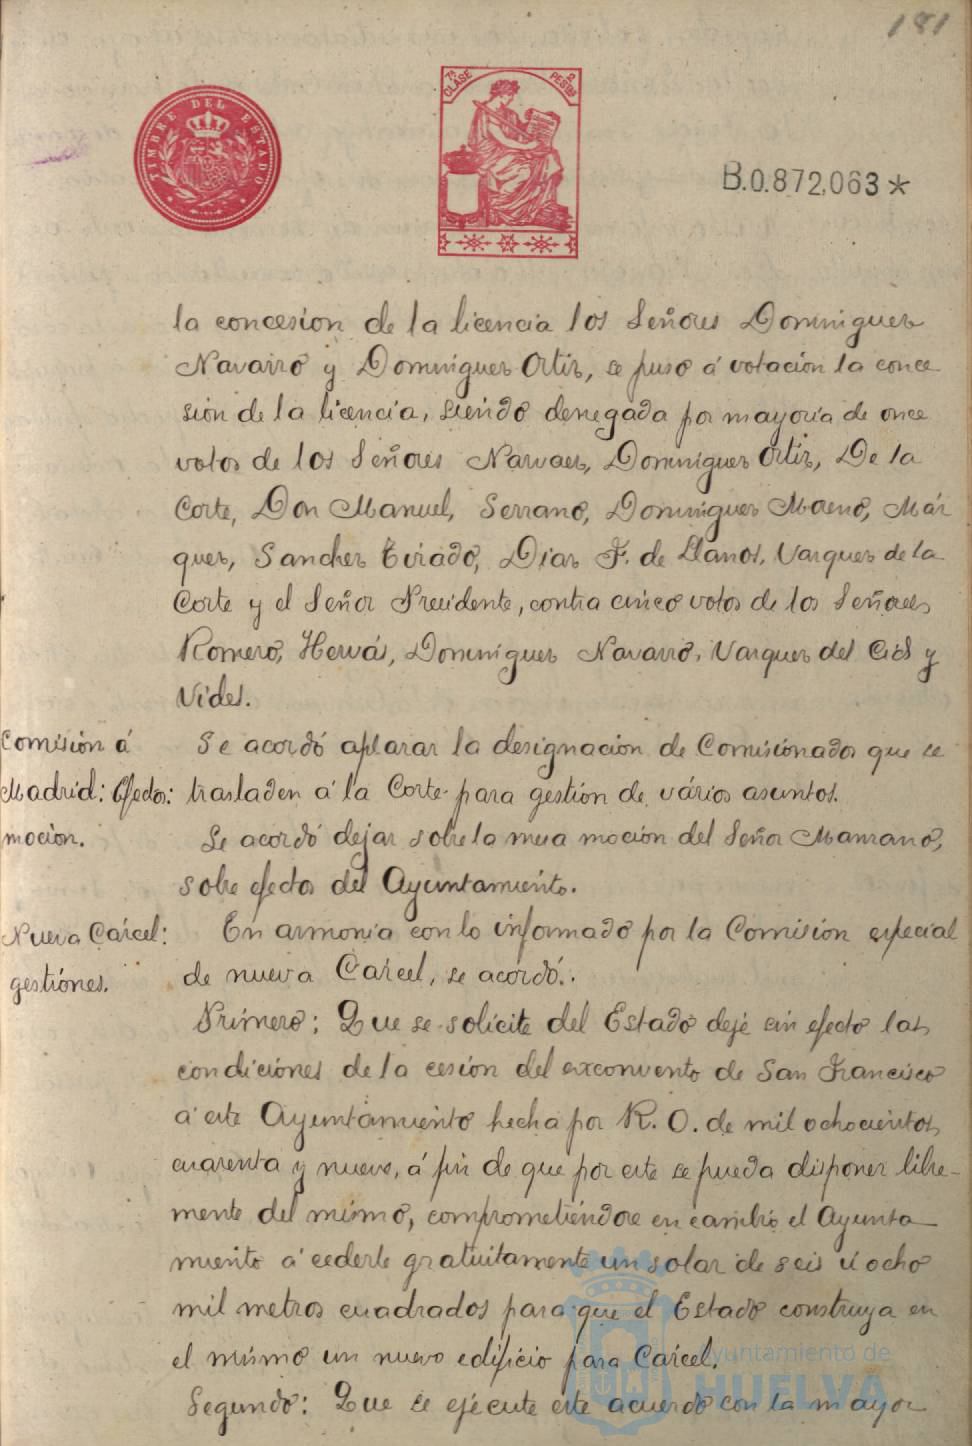 181
TIMBRE DEL ESTADO
7ª CLASE
2 PESTAS
B.0.872,063*
la concesion de la licencia los Señores Dominguez
Navarro y Dominguez Ortiz, se puso á votacion la conce
sion de la licencia, siendo denegada por mayoría de once
votos de los Señores Narvaez, Dominguez Ortiz, De la
Corte, Don Manuel, Serrano, Dominguez Moreno, Már
quez, Sanchez Tirado, Diaz F. de Llanos, Vazquez de la
Corte y el Señor Presidente, contra cinco votos de los Señores
Romero, Hervás, Dominguez Navarro, Vazquez del Cid y
Vides.
Comisión á
Madrid: Efectos:
mocion.
Se acordó aplazar la designacion de Comisionados que se
trasladen á la Corte para gestión de vários asuntos.
Se acordó dejar sobre la mesa moción del Señor Manzano,
sobre efectos del Ayuntamiento.
Nueva Cárcel:
gestiónes.
En armonía con lo informado por la Comision especial
de nueva Cárcel, se acordó:
Primero: Que se solicite del Estado deje sin efecto las
condiciones de la cesión del exconvento de San Francisco
á este Ayuntamiento hecha por R. O. de mil ochocientos
cuarenta y nueve, á fin de que por este se pueda disponer libre-
mente del mismo, comprometiéndose en cambio el Ayunta
miento á cederle gratuitamente un solar de seis ú ocho
mil metros cuadrados para que el Estado construya en
el mismo un nuevo edificio para Cárcel.
Segundo: Que se ejécute este acuerdo con la mayor
Ayuntamiento de
HUELVA